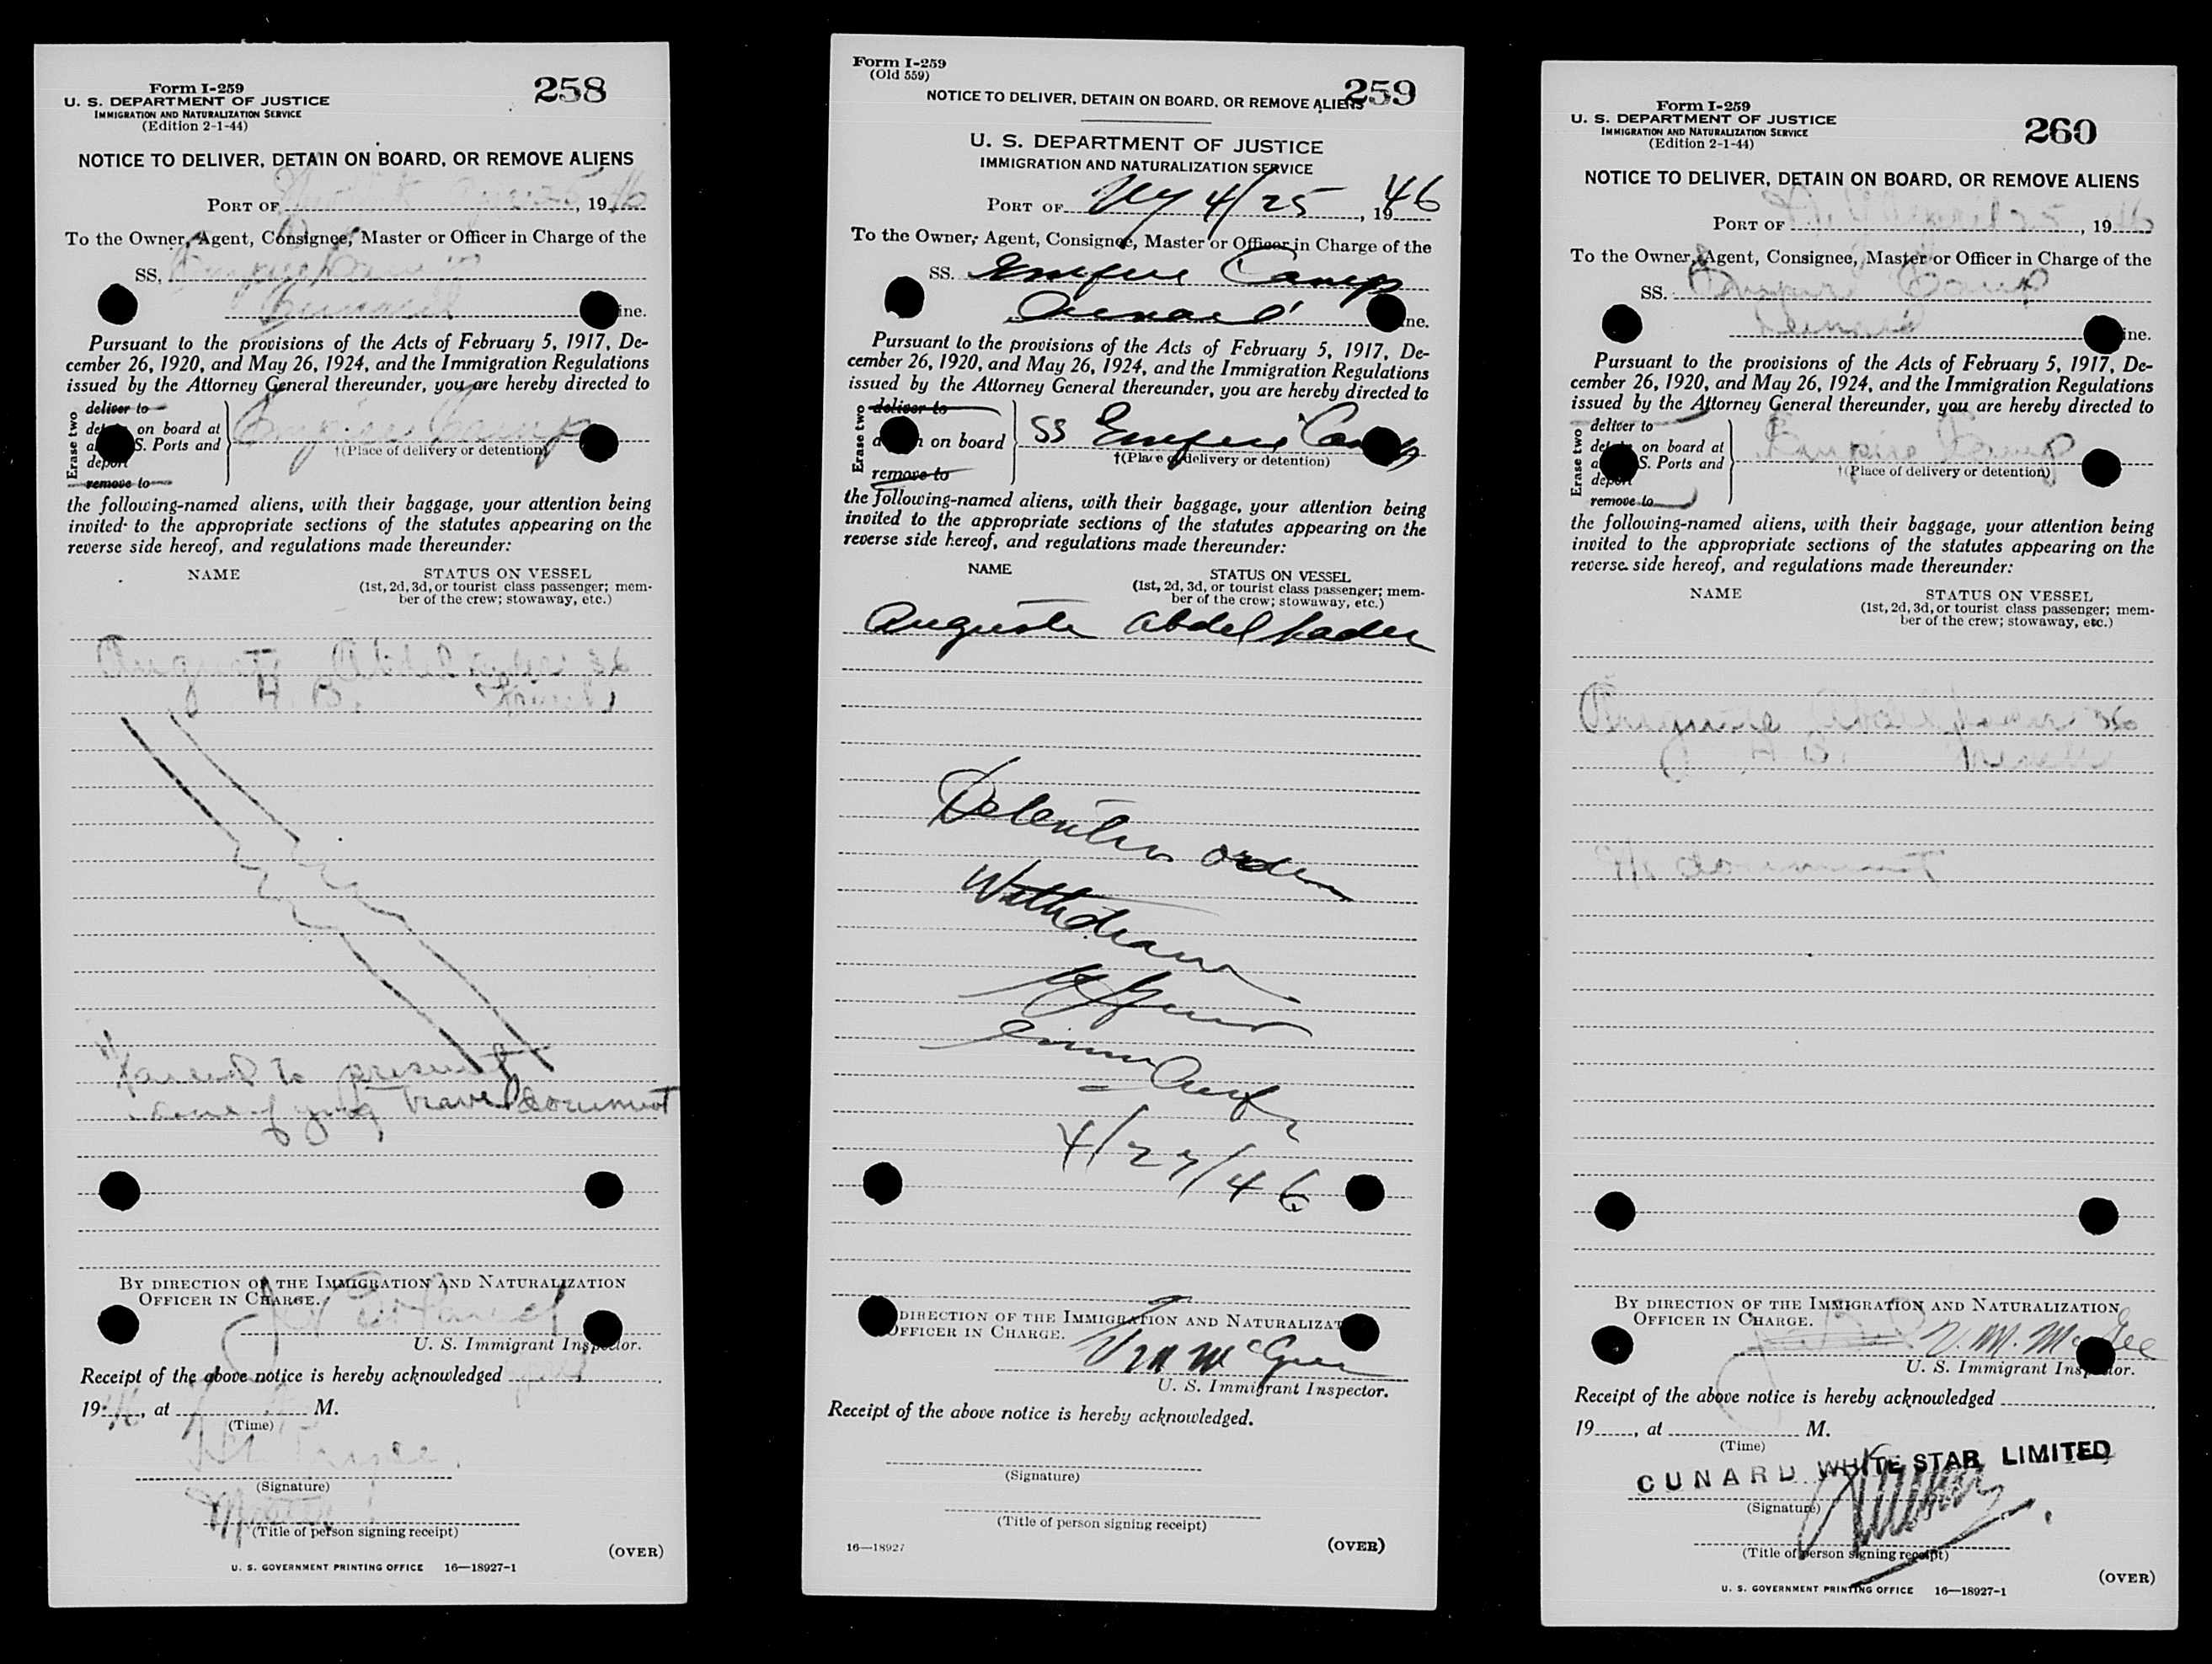 Form I-259
U. S. DEPARTMENT OF JUSTICE
IMMIGRATION AND NATURALIZATION SERVICE
(Edition 2-1-44)
258
NOTICE TO DELIVER, DETAIN ON BOARD, OR REMOVE ALIENS
PORT OF 25, 1946
To the Owner, Agent, Consignee, Master or Officer in Charge of the
SS. Empire
Cunard ine.
Pursuant to the provisions of the Acts of February 5, 1917, De-
cember 26, 1920, and May 26, 1924, and the Immigration Regulations
issued by the Attorney General thereunder, you are hereby directed to
Erase two
deliver to
on board at
S. Ports and
deport
remove to
Empire Camp
†(Place of delivery or detention)
the following-named aliens, with their baggage, your attention being
invited to the appropriate sections of the statutes appearing on the
reverse side hereof, and regulations made thereunder:
NAME STATUS ON VESSEL
(1st, 2d, 3d, or tourist class passenger; mem-
ber of the crew; stowaway, etc.)
August
H. B.
to present
travel document
BY DIRECTION OF THE IMMIGRATION AND NATURALIZATION
OFFICER IN CHARGE.
U. S. Immigrant Inspector.
Receipt of the above notice is hereby acknowledged
1946, at M.
(Time)
(Signature)
Master
(Title of person signing receipt)
(OVER)
U. S. GOVERNMENT PRINTING OFFICE 16—18927-1
Form I-259
(Old 559)
259
NOTICE TO DELIVER, DETAIN ON BOARD, OR REMOVE ALIENS
U. S. DEPARTMENT OF JUSTICE
IMMIGRATION AND NATURALIZATION SERVICE
PORT OF NY 4/25, 1946
To the Owner, Agent, Consignee, Master or Officer in Charge of the
SS. Empire Camp
Cunard ine.
Pursuant to the provisions of the Acts of February 5, 1917, De-
cember 26, 1920, and May 26, 1924, and the Immigration Regulations
issued by the Attorney General thereunder, you are hereby directed to
Erase two
deliver to
on board
remove to
SS Empire Camp
†(Place of delivery or detention)
the following-named aliens, with their baggage, your attention being
invited to the appropriate sections of the statutes appearing on the
reverse side hereof, and regulations made thereunder:
NAME STATUS ON VESSEL
(1st, 2d, 3d, or tourist class passenger; mem-
ber of the crew; stowaway, etc.)
Auguste Abdelkader
Detention order
Withdrawn
4/27/46
DIRECTION OF THE IMMIGRATION AND NATURALIZAT
OFFICER IN CHARGE.
V M McGee
U. S. Immigrant Inspector.
Receipt of the above notice is hereby acknowledged.
(Signature)
(Title of person signing receipt)
16—18927 (OVER)
Form I-259
U. S. DEPARTMENT OF JUSTICE
IMMIGRATION AND NATURALIZATION SERVICE
(Edition 2-1-44)
260
NOTICE TO DELIVER, DETAIN ON BOARD, OR REMOVE ALIENS
PORT OF N.Y. April 25, 1946
To the Owner, Agent, Consignee, Master or Officer in Charge of the
SS. Empire Camp
Cunard ine.
Pursuant to the provisions of the Acts of February 5, 1917, De-
cember 26, 1920, and May 26, 1924, and the Immigration Regulations
issued by the Attorney General thereunder, you are hereby directed to
Erase two
deliver to
on board at
S. Ports and
deport
remove to
Empire Camp
†(Place of delivery or detention)
the following-named aliens, with their baggage, your attention being
invited to the appropriate sections of the statutes appearing on the
reverse side hereof, and regulations made thereunder:
NAME STATUS ON VESSEL
(1st, 2d, 3d, or tourist class passenger; mem-
ber of the crew; stowaway, etc.)
Auguste
H. B.
document
BY DIRECTION OF THE IMMIGRATION AND NATURALIZATION
OFFICER IN CHARGE.
V. M. McGee
U. S. Immigrant Inspector.
Receipt of the above notice is hereby acknowledged
19, at M.
(Time)
CUNARD WHITE STAR LIMITED
(Signature)
(Title of person signing receipt)
(OVER)
U. S. GOVERNMENT PRINTING OFFICE 16—18927-1